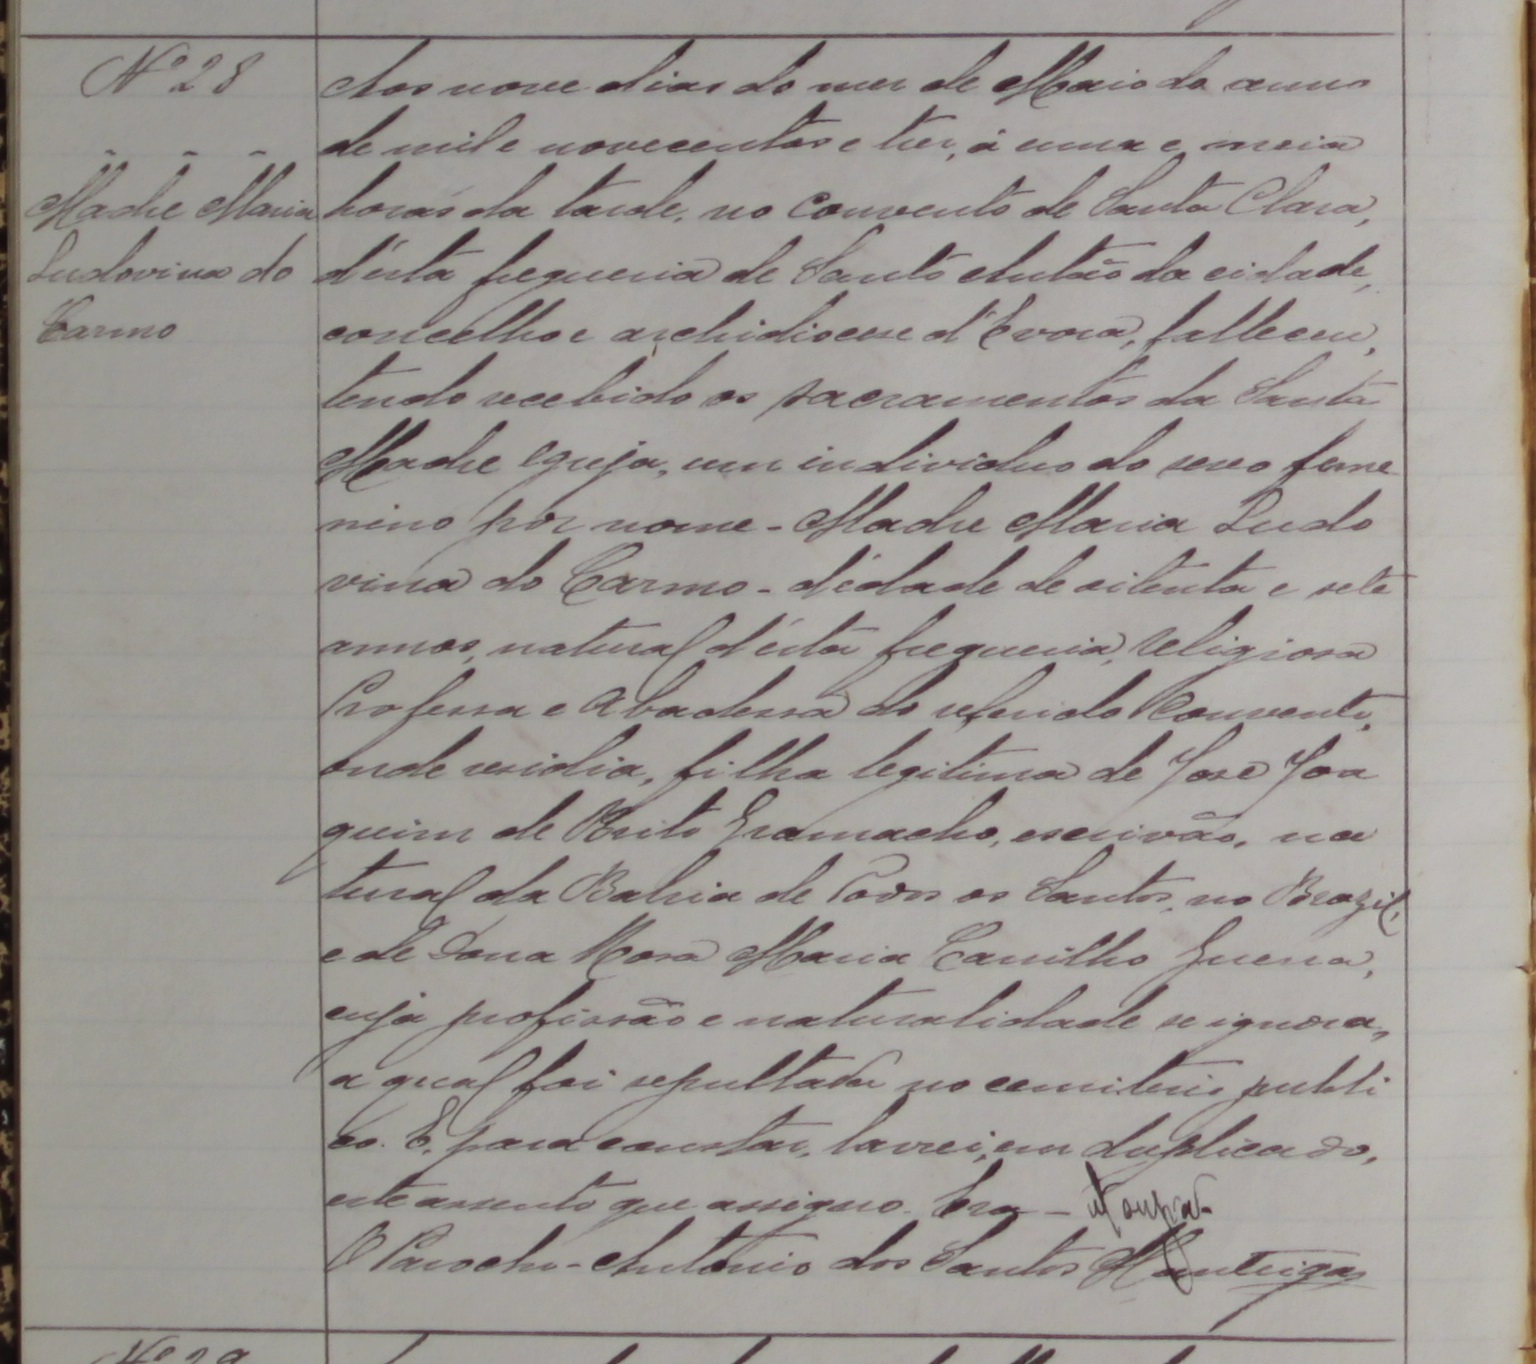 Nº 28
Madre Maria
Ludovina do
Carmo
Aos nove dias do mez de Maio do anno
de mil e novecentos e trez, á uma e meia
horas da tarde, no convento de Santa Clara,
d'ésta freguezia de Santo Antão da cidade,
concelho e archidiocese d'Evora, falleceu,
tendo recebido os sacramentos da Santa
Madre Egreja, um individuo do sexo feme
nino por nome - Madre Maria Ludo
vina do Carmo - d'edade de oitenta e sete
annos, natural d'ésta freguezia, religiosa
Professa e Abadessa do referido Convento,
onde residia, filha legitima de José Joa
quim de Brito Gramacho, escrivão, na
tural da Bahia de Todos os Santos, no Brazil,
e de Dona Rosa Maria Carrilho Guerra,
cuja profissão e naturalidade se ignora,
a qual foi sepultada no cemiterio publi
co. E, para constar, lavrei, em duplicado,
este assento que assigno. Era -
O Parocho - Antonio dos Santos Manteigas
Nº 29